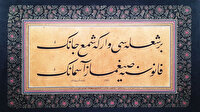 بر شعله سی وارکه شمع جانک
فانوسنه صیغماز آسمانک